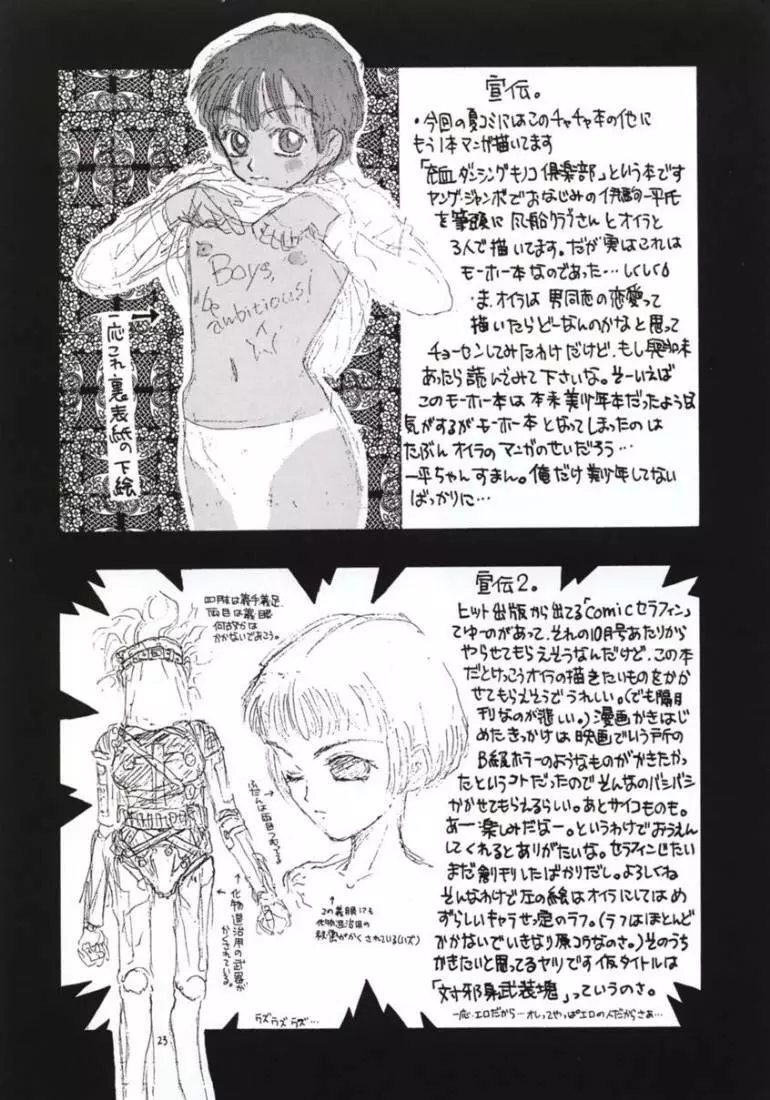 宣伝。
・今回の夏コミにはこのチャチャ本の他に
もう1本マンガ描いてます
ダンシングキノコ倶楽部」という本です
ヤング・ジャンボでおなじみの伊駒一平氏
を筆頭に風船クラブさんとオイラと
3人で描いてます。だが実はこれは
モーホー本なのであった…しくしく
ま、オイラは男同志の恋愛って
描いたらどーなんのかなと思って
チョーセンしてみたわけだけど、もし興味
あったら読んでみて下さいな。そーいえば
このモーホー本は本来美少年本だったような
気がするがモーホー本となってしまったのは
たぶんオイラのマンガのせいだろう…
一平ちゃんすまん。俺だけ美少年してない
ばっかりに…
Boys,
be
ambitious!
一応これ裏表紙の下絵
宣伝2。
ヒット出版から出てる「Comicセラフィン」
てゆーのがあって、それの10月号あたりから
やらせてもらえそうなんだけど、この本
だとけっこうオイラの描きたいものをかか
せてもらえそうでうれしい。(でも隔月
刊なのが悲しい。)漫画かきはじ
めたきっかけは映画でいう所の
B級ホラーのようなものががきたかっ
たというコトだったのでそんなのバシバシ
かかせてもらえるらしい。あとサイコものも。
あー楽しみだなー。というわけでおうえん
してくれるとありがたいな。セラフィンじたい
まだ創刊したばかりだし。よろしくね
そんなわけで左の絵はオイラにしてはめ
ずらしいキャラせってい のラフ。(ラフはほとんど
かかないでいきなり原コウなのさ。)そのうち
かきたいと思ってるヤツです仮タイトルは
「対邪身武装塊」っていうのさ。
一応、エロだから…オレってやっぱエロの人だからさぁ…
四肢は義手義足
両目は義眼
何故かは
かかないでおこう。
ふだんは両目つむってる
↑
この義眼にも
化物退治用の
秘密がかくされている(ハズ)
↑
化物退治用の武器が
かくされている。
ラズラズラズ…
23